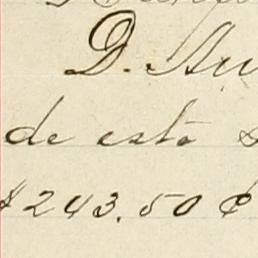 D. Au
de esta
$243.50 ¢